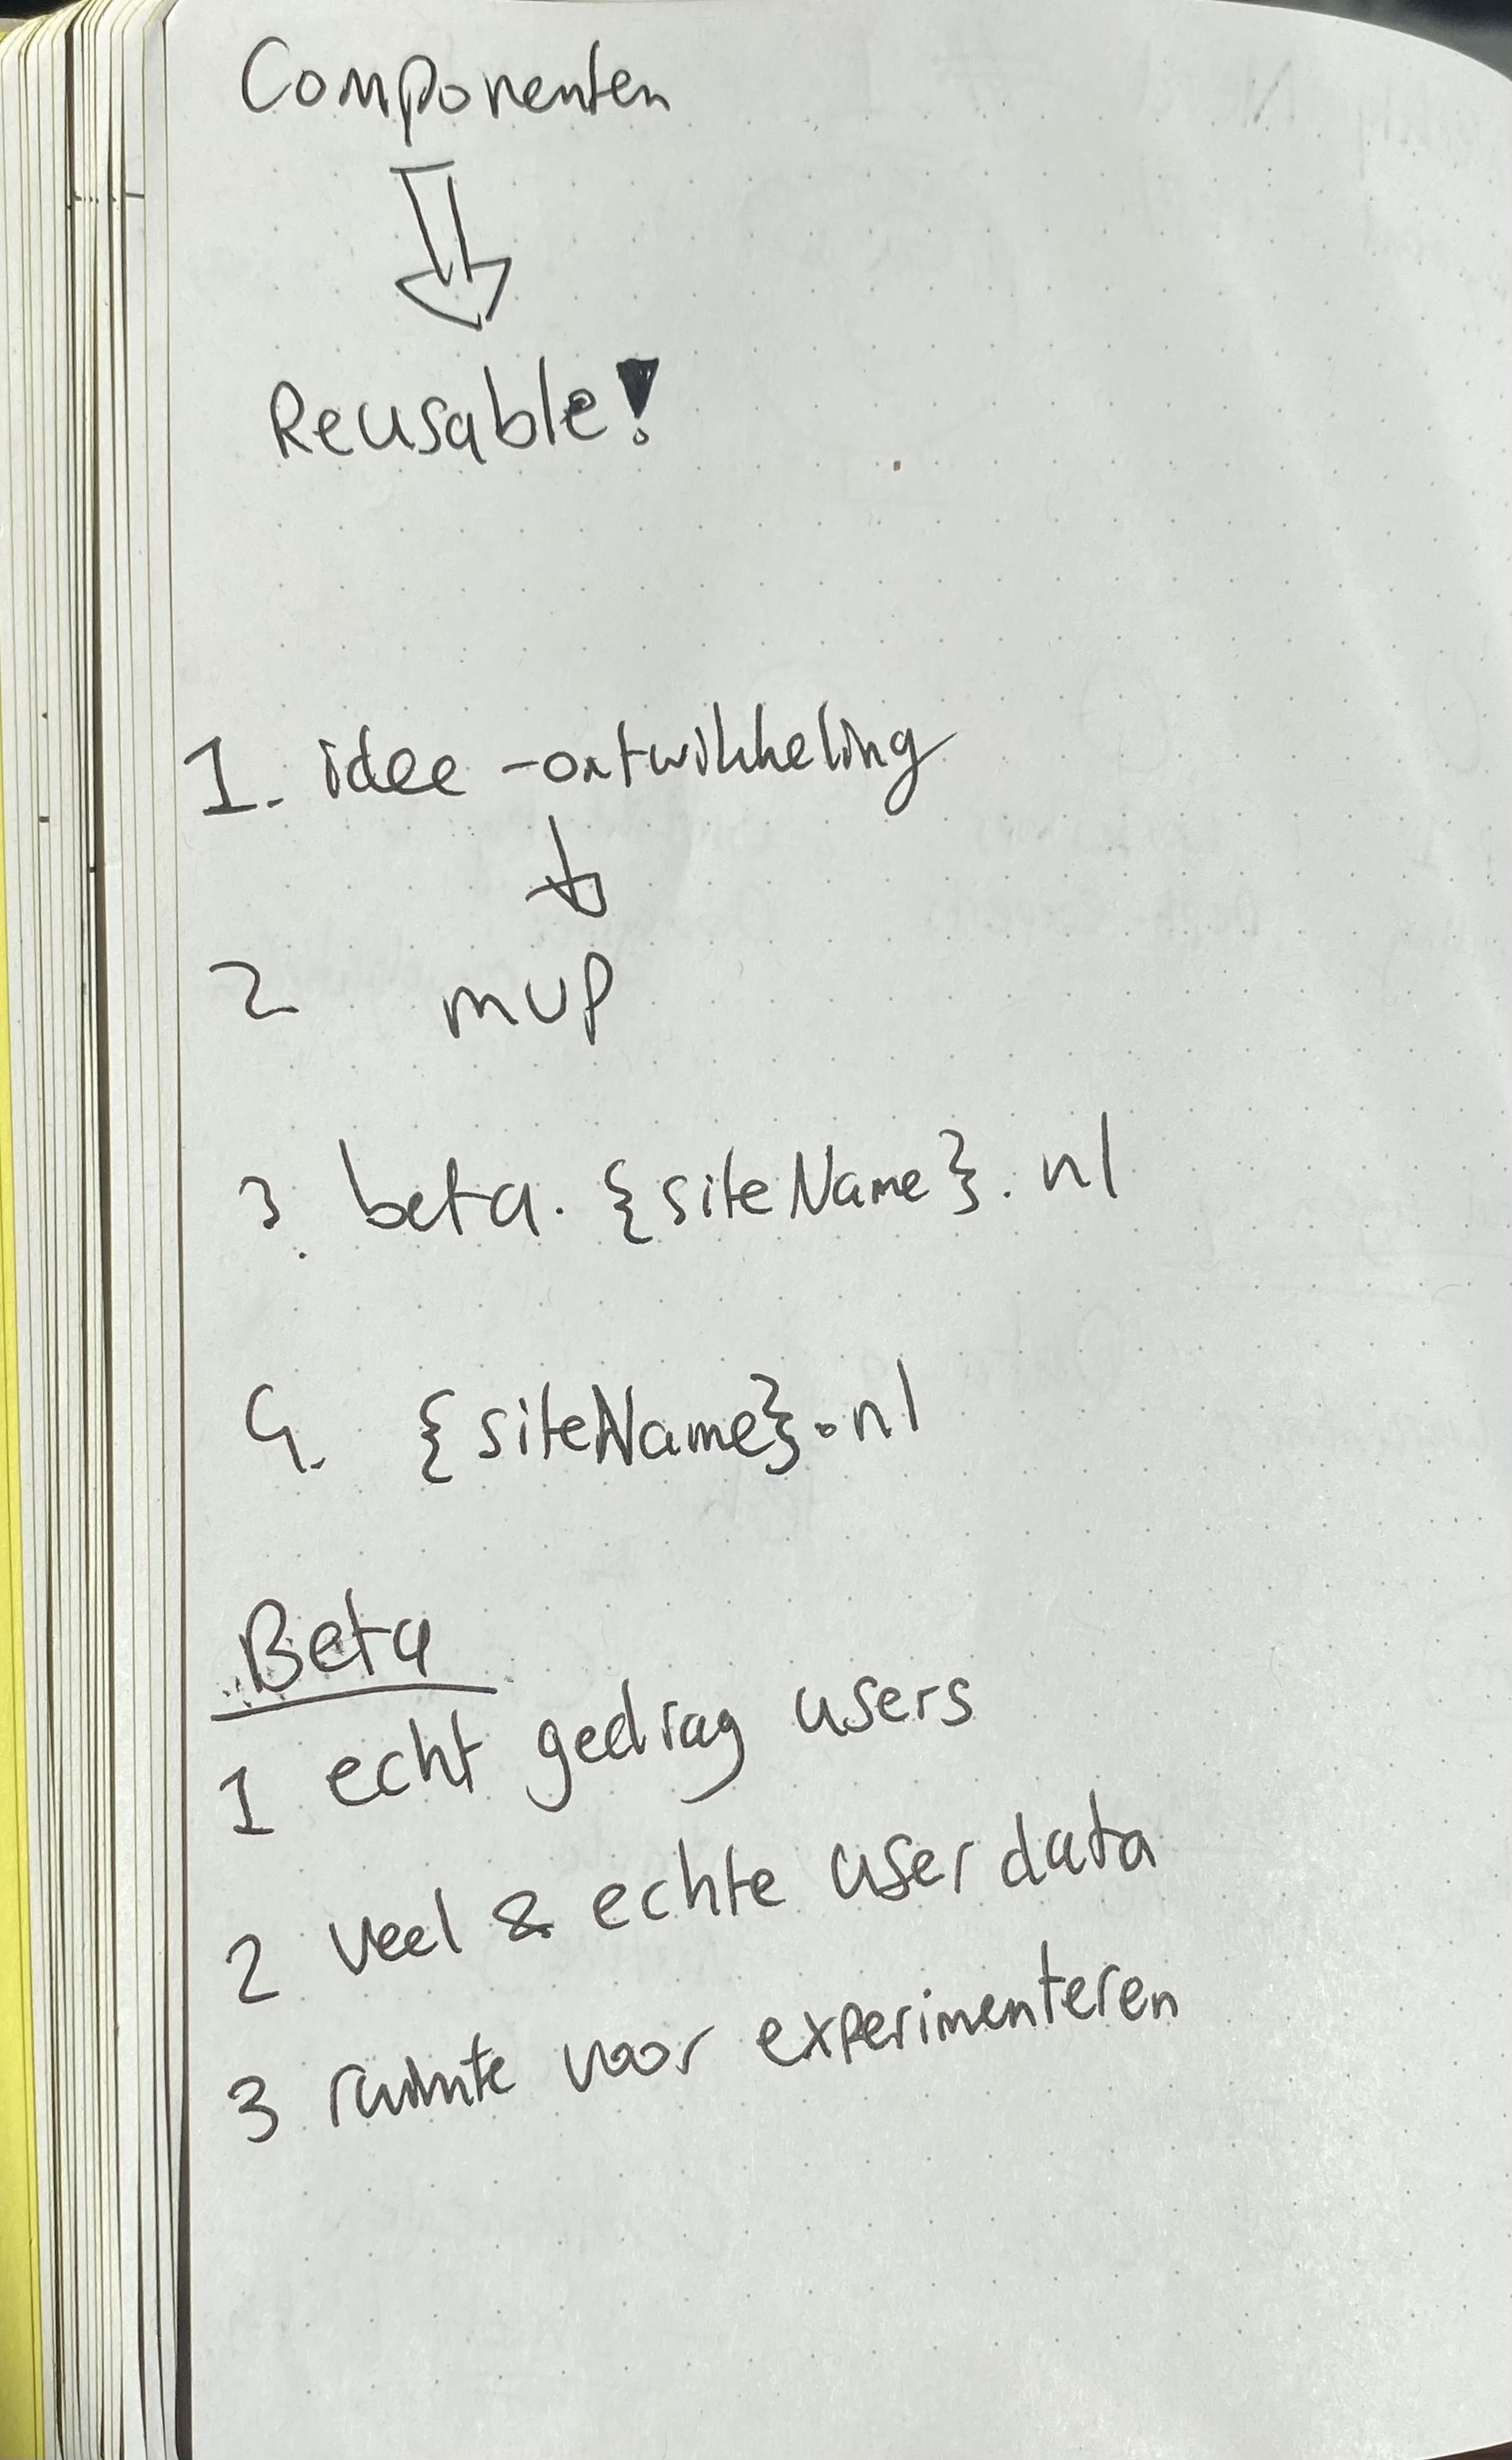 Componenten
Reusable!
1. idee-ontwikkeling
2 mvp
3. beta.{siteName}.nl
4. {siteName}.nl
Beta
1 echt gedrag users
2 veel & echte user data
3 ruimte voor experimenteren